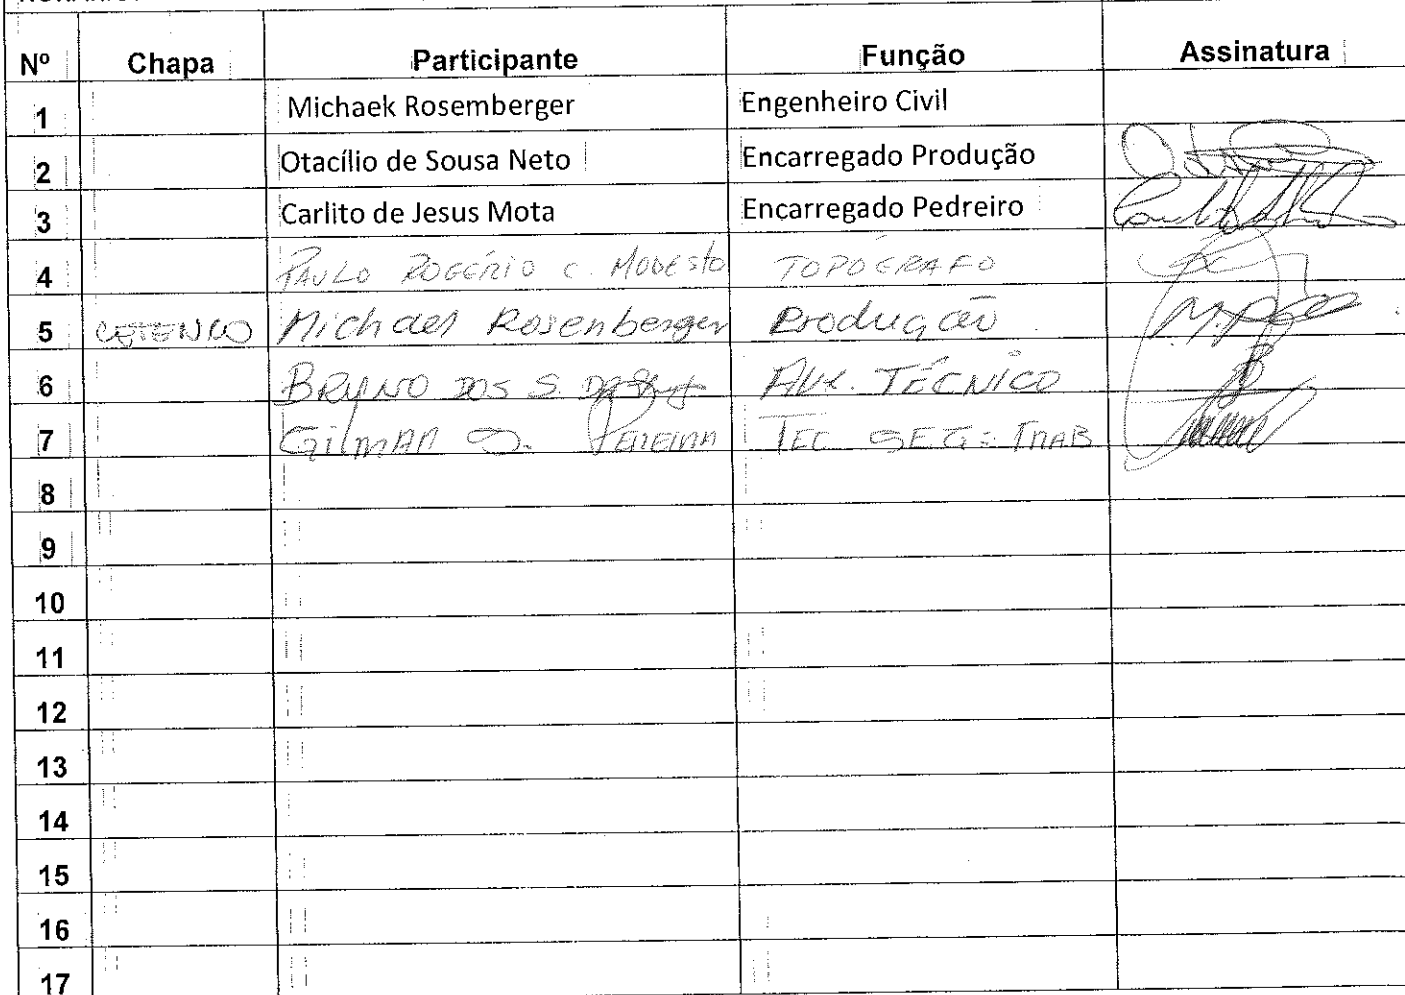 Nº Chapa Participante Função Assinatura
1 Michaek Rosemberger Engenheiro Civil
2 Otacílio de Sousa Neto Encarregado Produção
3 Carlito de Jesus Mota Encarregado Pedreiro
4 PAULO ROGÉRIO C. MODESTO TOPÓGRAFO
5 CETENCO Michael Rosenberger Produção
6 BRUNO DOS S. AUX. TÉCNICO
7 GILMAR S. PEREIRA TEC SEG. TRAB
8
9
10
11
12
13
14
15
16
17